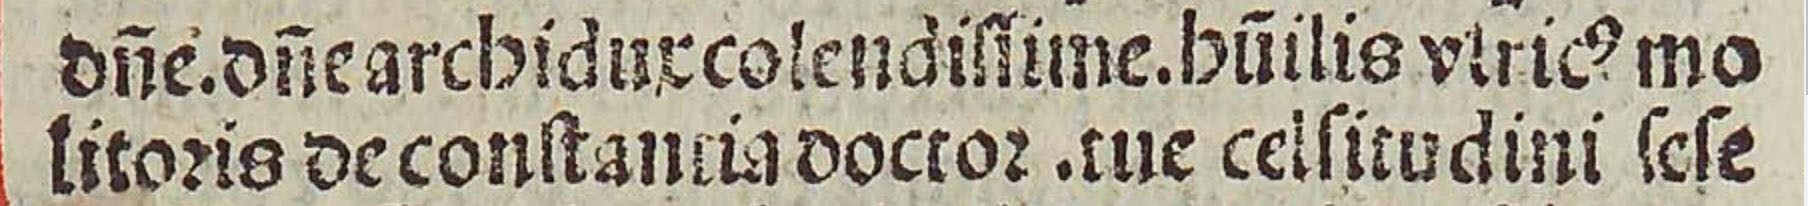 dn̄e.dn̄e archidux colendiſſime.hūilis vlricꝰ mo
litoris de conſtantia doctor .tue celſitudini ſeſe